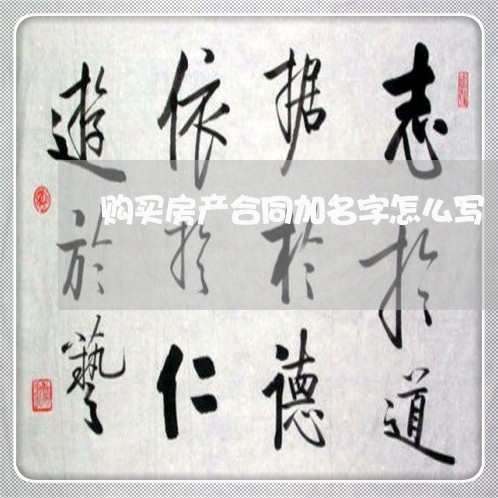 志於道
据於德
依於仁
遊於藝
购买房产合同加名字怎么写